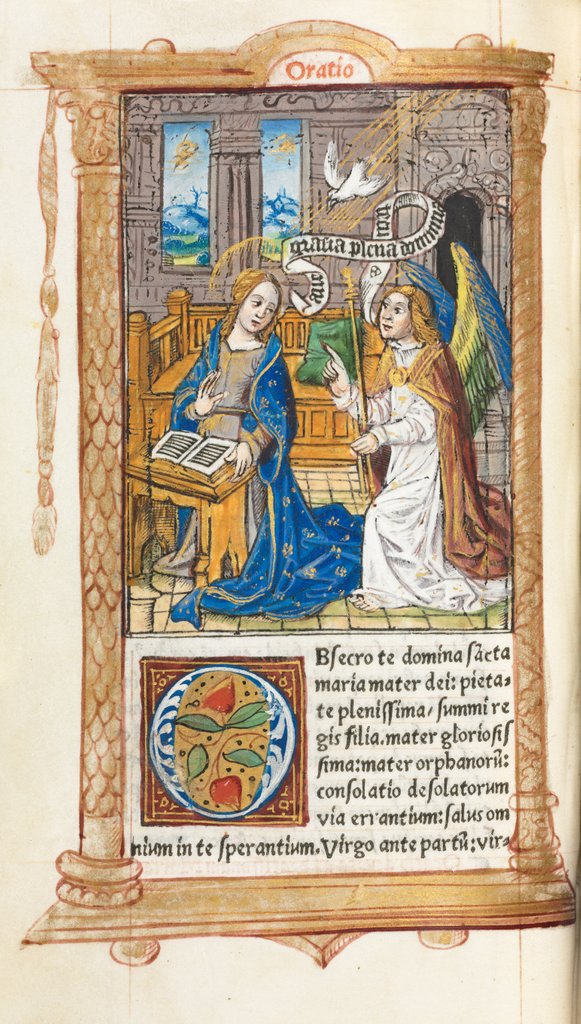 Oratio
aue gratia plena dominus
Bsecro te domina sācta
maria mater dei: pieta⸗
te plenissima, summi re
gis filia. mater gloriosis
sima: mater orphanorū:
consolatio desolatorum
via errantium: salus om
nium in te sperantium. Virgo ante partū: vir⸗